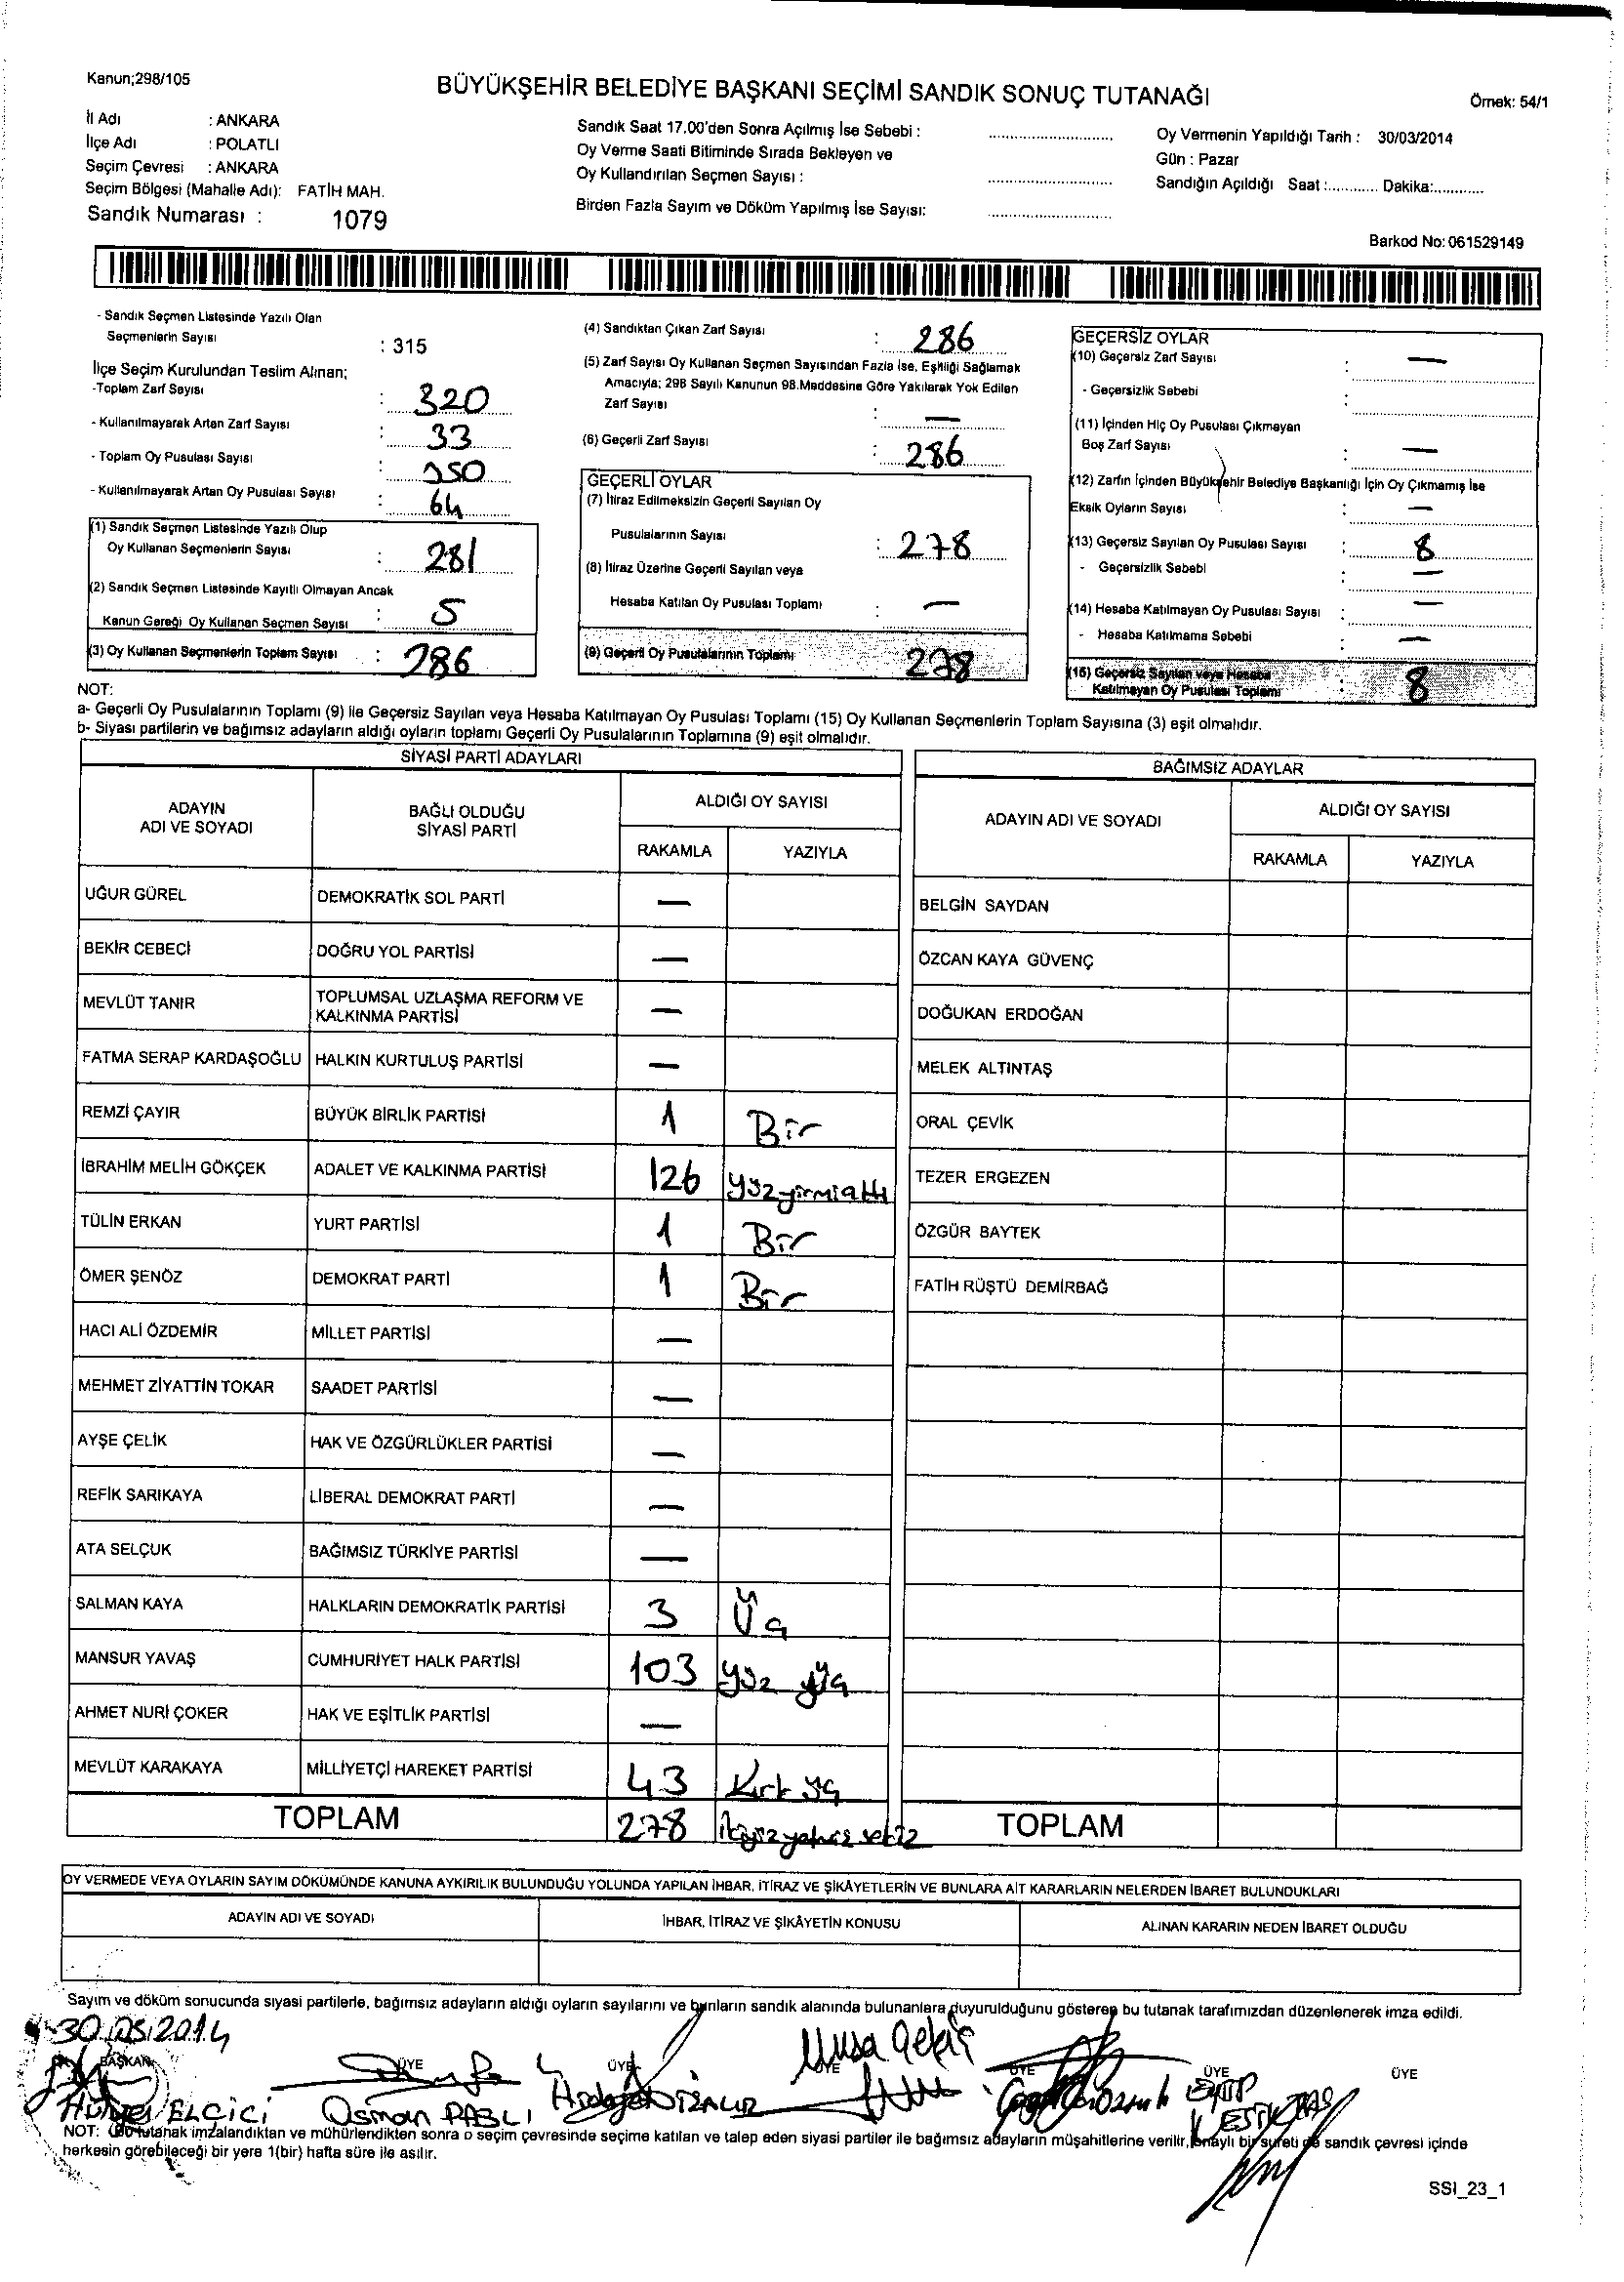 Kanun;298/105
BÜYÜKŞEHİR BELEDİYE BAŞKANI SEÇİMİ SANDIK SONUÇ TUTANAĞI
Örnek: 54/1
İl Adı : ANKARA
İlçe Adı : POLATLI
Seçim Çevresi : ANKARA
Seçim Bölgesi (Mahalle Adı): FATİH MAH.
Sandık Numarası : 1079
Sandık Saat 17.00'den Sonra Açılmış İse Sebebi :
Oy Verme Saati Bitiminde Sırada Bekleyen ve
Oy Kullandırılan Seçmen Sayısı :
Birden Fazla Sayım ve Döküm Yapılmış İse Sayısı:
Oy Vermenin Yapıldığı Tarih : 30/03/2014
Gün : Pazar
Sandığın Açıldığı Saat :............ Dakika:............
Barkod No: 061529149
- Sandık Seçmen Listesinde Yazılı Olan
Seçmenlerin Sayısı : 315
İlçe Seçim Kurulundan Teslim Alınan;
-Toplam Zarf Sayısı : 320
- Kullanılmayarak Artan Zarf Sayısı : 33
- Toplam Oy Pusulası Sayısı : 350
- Kullanılmayarak Artan Oy Pusulası Sayısı : 64
(1) Sandık Seçmen Listesinde Yazılı Olup
Oy Kullanan Seçmenlerin Sayısı : 281
(2) Sandık Seçmen Listesinde Kayıtlı Olmayan Ancak
Kanun Gereği Oy Kullanan Seçmen Sayısı : 5
(3) Oy Kullanan Seçmenlerin Toplam Sayısı : 286
(4) Sandıktan Çıkan Zarf Sayısı : 286
(5) Zarf Sayısı Oy Kullanan Seçmen Sayısından Fazla İse, Eşitliği Sağlamak
Amacıyla; 298 Sayılı Kanunun 98.Maddesine Göre Yakılarak Yok Edilen
Zarf Sayısı : —
(6) Geçerli Zarf Sayısı : 286
GEÇERLİ OYLAR
(7) İtiraz Edilmeksizin Geçerli Sayılan Oy
Pusulalarının Sayısı : 278
(8) İtiraz Üzerine Geçerli Sayılan veya
Hesaba Katılan Oy Pusulası Toplamı : —
(9) Geçerli Oy Pusulalarının Toplamı 278
GEÇERSİZ OYLAR
(10) Geçersiz Zarf Sayısı : —
- Geçersizlik Sebebi :
(11) İçinden Hiç Oy Pusulası Çıkmayan
Boş Zarf Sayısı : —
(12) Zarfın İçinden Büyükşehir Belediye Başkanlığı İçin Oy Çıkmamış İse
Eksik Oyların Sayısı : —
(13) Geçersiz Sayılan Oy Pusulası Sayısı : 8
- Geçersizlik Sebebi : —
(14) Hesaba Katılmayan Oy Pusulası Sayısı : —
- Hesaba Katılmama Sebebi : —
(15) Geçersiz Sayılan veya Hesaba
Katılmayan Oy Pusulası Toplamı : 8
NOT:
a- Geçerli Oy Pusulalarının Toplamı (9) ile Geçersiz Sayılan veya Hesaba Katılmayan Oy Pusulası Toplamı (15) Oy Kullanan Seçmenlerin Toplam Sayısına (3) eşit olmalıdır.
b- Siyasi partilerin ve bağımsız adayların aldığı oyların toplamı Geçerli Oy Pusulalarının Toplamına (9) eşit olmalıdır.
SİYASİ PARTİ ADAYLARI
ADAYIN ADI VE SOYADI
BAĞLI OLDUĞU SİYASİ PARTİ
ALDIĞI OY SAYISI
RAKAMLA YAZIYLA
UĞUR GÜREL DEMOKRATİK SOL PARTİ —
BEKİR CEBECİ DOĞRU YOL PARTİSİ —
MEVLÜT TANIR TOPLUMSAL UZLAŞMA REFORM VE KALKINMA PARTİSİ —
FATMA SERAP KARDAŞOĞLU HALKIN KURTULUŞ PARTİSİ —
REMZİ ÇAYIR BÜYÜK BİRLİK PARTİSİ 1 Bir
İBRAHİM MELİH GÖKÇEK ADALET VE KALKINMA PARTİSİ 126 yüzyirmialtı
TÜLİN ERKAN YURT PARTİSİ 1 Bir
ÖMER ŞENÖZ DEMOKRAT PARTİ 1 Bir
HACI ALİ ÖZDEMİR MİLLET PARTİSİ —
MEHMET ZİYATTİN TOKAR SAADET PARTİSİ —
AYŞE ÇELİK HAK VE ÖZGÜRLÜKLER PARTİSİ —
REFİK SARIKAYA LİBERAL DEMOKRAT PARTİ —
ATA SELÇUK BAĞIMSIZ TÜRKİYE PARTİSİ —
SALMAN KAYA HALKLARIN DEMOKRATİK PARTİSİ 3 Üç
MANSUR YAVAŞ CUMHURİYET HALK PARTİSİ 103 yüz üç
AHMET NURİ ÇOKER HAK VE EŞİTLİK PARTİSİ —
MEVLÜT KARAKAYA MİLLİYETÇİ HAREKET PARTİSİ 43 Kırk üç
TOPLAM 278 ikiyüzyetmiş sekiz
BAĞIMSIZ ADAYLAR
ADAYIN ADI VE SOYADI
ALDIĞI OY SAYISI
RAKAMLA YAZIYLA
BELGİN SAYDAN
ÖZCAN KAYA GÜVENÇ
DOĞUKAN ERDOĞAN
MELEK ALTINTAŞ
ORAL ÇEVİK
TEZER ERGEZEN
ÖZGÜR BAYTEK
FATİH RÜŞTÜ DEMİRBAĞ
TOPLAM
OY VERMEDE VEYA OYLARIN SAYIM DÖKÜMÜNDE KANUNA AYKIRILIK BULUNDUĞU YOLUNDA YAPILAN İHBAR, İTİRAZ VE ŞİKÂYETLERİN VE BUNLARA AİT KARARLARIN NELERDEN İBARET BULUNDUKLARI
ADAYIN ADI VE SOYADI İHBAR, İTİRAZ VE ŞİKÂYETİN KONUSU ALINAN KARARIN NEDEN İBARET OLDUĞU
Sayım ve döküm sonucunda siyasi partilerle, bağımsız adayların aldığı oyların sayılarını ve bunların sandık alanında bulunanlara duyurulduğunu gösteren bu tutanak tarafımızdan düzenlenerek imza edildi.
30.03.2014
BAŞKAN ÜYE ÜYE ÜYE ÜYE ÜYE ÜYE
ELÇİCİ Osman Musa EYÜP
NOT: Bu tutanak imzalandıktan ve mühürlendikten sonra o seçim çevresinde seçime katılan ve talep eden siyasi partiler ile bağımsız adayların müşahitlerine verilir, onaylı bir sureti de sandık çevresi içinde
herkesin görebileceği bir yere 1(bir) hafta süre ile asılır.
SSI_23_1